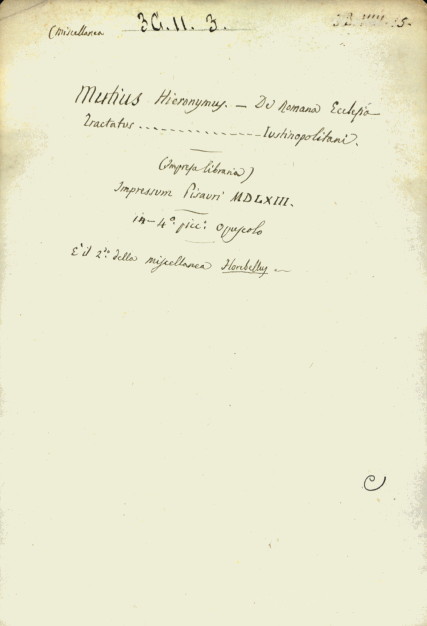 (Miscellanea 3G. 11. 3.
Mutius Hieronymus. — De Romana Ecclesia
Tractatus .............. Iustinopolitani.
(Impresa libraria)
Impressum Pisauri MDLXIII.
in-4°. picc°. Opuscolo
È il 2do. della miscellanea Horebellus